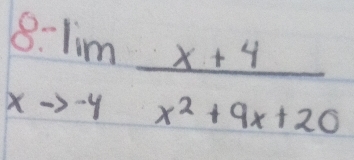 8.- lim x + 4
x -> -4 x² + 9x + 20